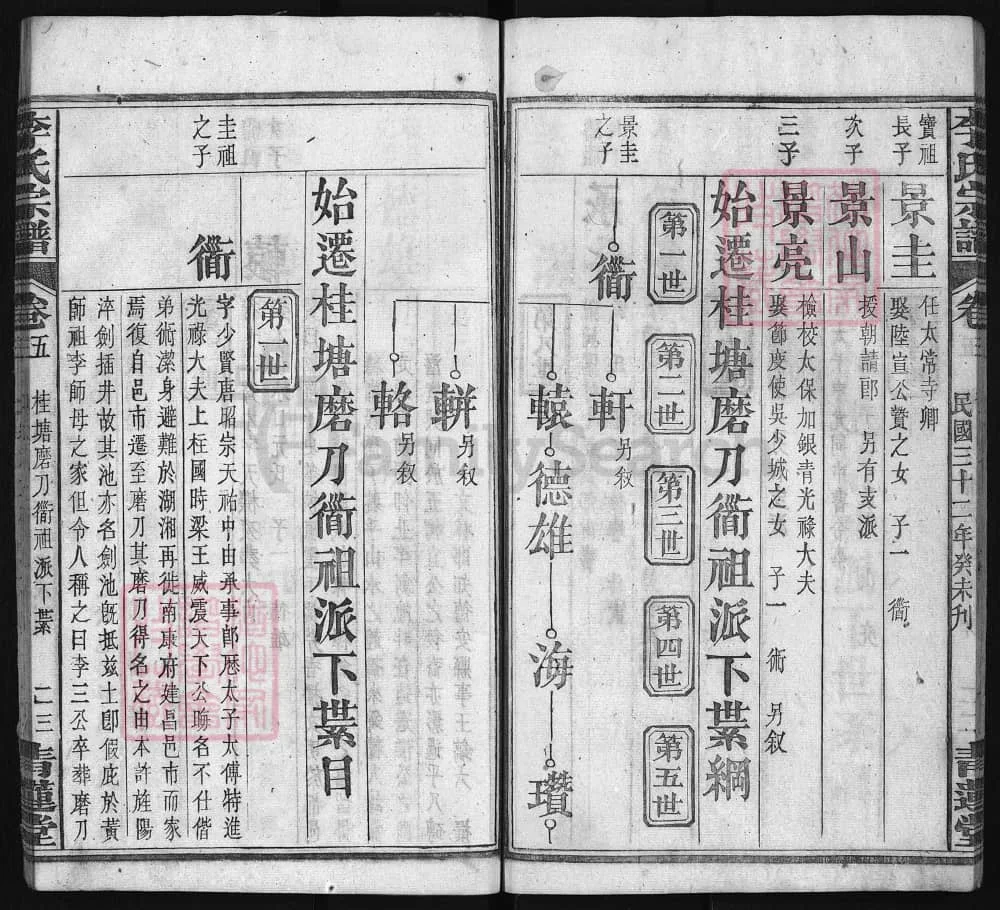 李氏宗譜
卷五
民國三十二年癸未刊
青蓮堂
寶祖
長子
景圭
任太常寺卿
娶陸宣公贄之女 子一 衢
次子
景山
援朝請郎 另有支派
三子
景亮
檢校太保加銀青光祿大夫
娶節度使吳少城之女 子一 術 另叙
始遷桂塘磨刀衢祖派下葉綱
第一世
第二世
第三世
第四世
第五世
景圭
之子
衢
軒
另叙
轅
德雄
海
瓚
輧
另叙
輅
另叙
始遷桂塘磨刀衢祖派下葉目
第一世
圭祖
之子
衢
字少賢唐昭宗天祐中由承事郎歷太子太傅特進
光祿大夫上柱國時梁王威震天下公聯名不仕偕
弟術潔身避難於湖湘再徙南康府建昌邑市而家
焉復自邑市遷至磨刀其磨刀得名之由本許旌陽
淬劍插井故其池亦名劍池旣抵兹土卽假庇於黄
師祖李師母之家但令人稱之曰李三公卒葬磨刀
李氏宗譜
卷五
桂塘磨刀衢祖派下葉
二三
青蓮堂